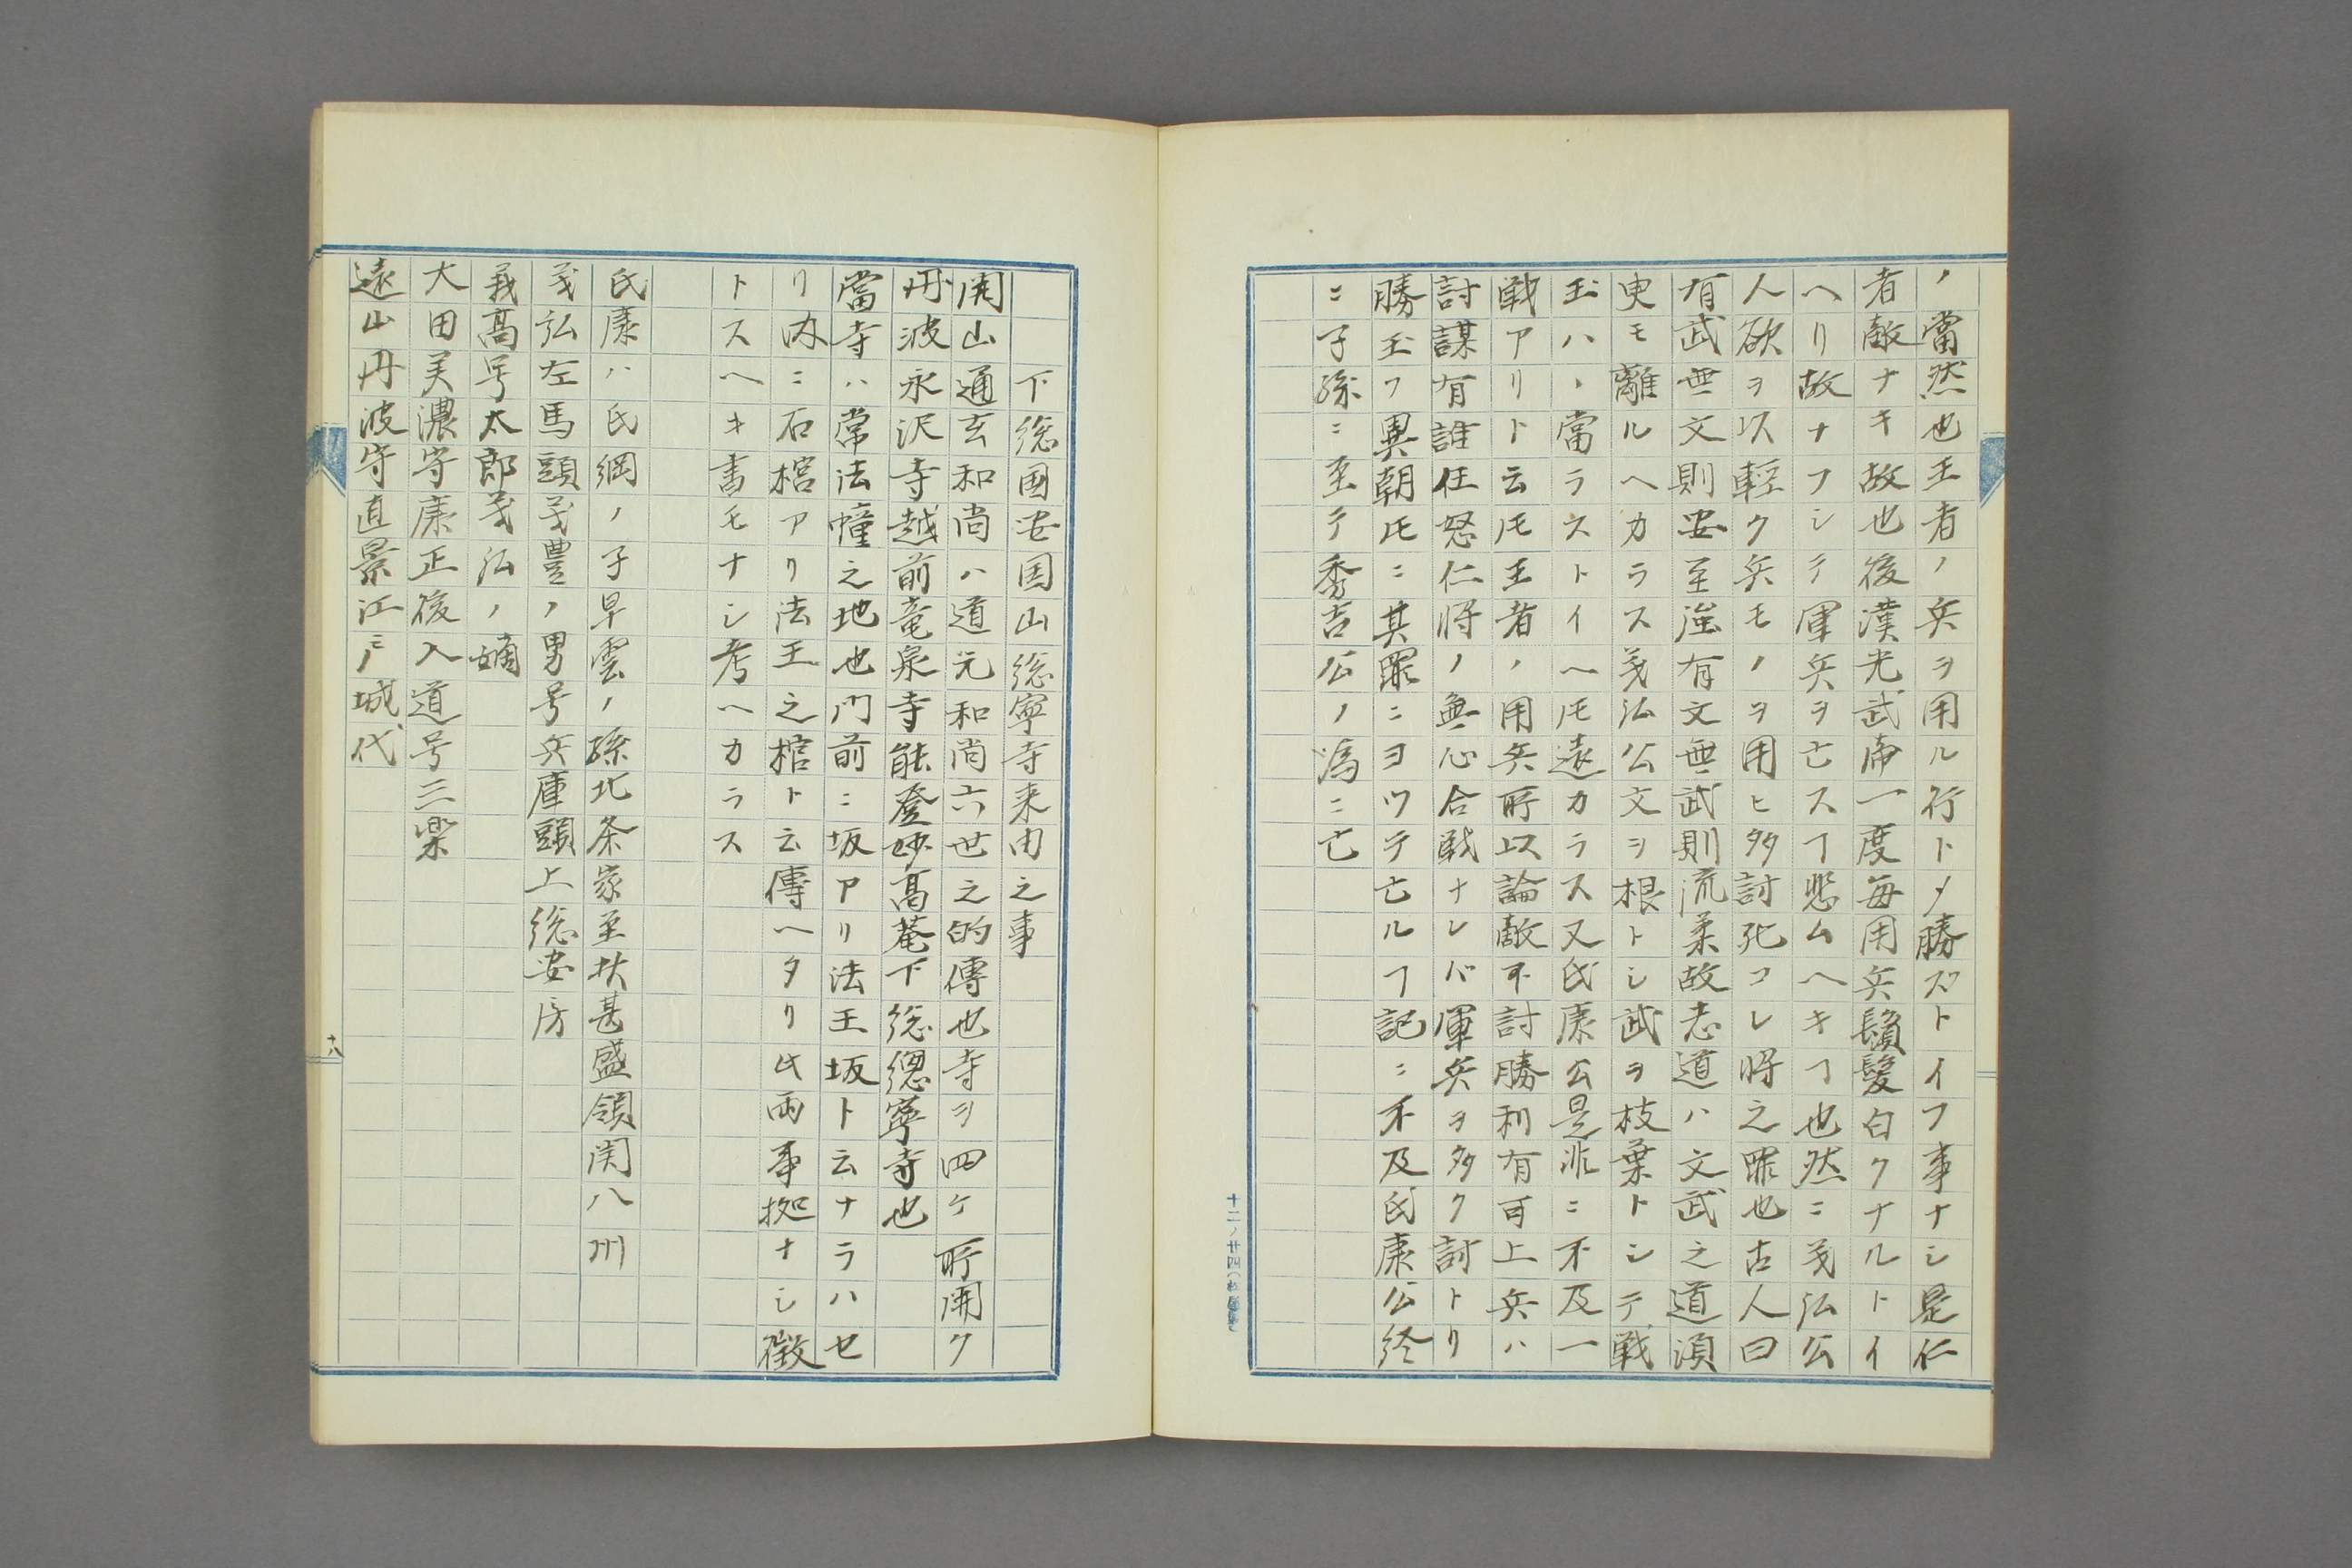 ノ當然也王者ノ兵ヲ用ル行トメ勝ズトイフ事ナシ是仁
者敵ナキ故也後漢光武帝一度毎用兵鬚髪白クナルトイ
ヘリ故ナフシテ軍兵ヲ亡スヿ悲ムヘキヿ也然ニ義弘公
人欲ヲ以軽ク兵モノヲ用ヒ多討死コレ将之罪也古人曰
有武無文則安至強有文無武則流柔故志道ハ文武之道須
臾モ離ルヘカラス義弘公文ヲ根トシ武ヲ枝葉トシテ戦
玉ハヽ當ラストイヘ𪜈遠カラス又氏康公是非ニ不及一
戦アリト云𪜈王者ノ用兵所以論敵不討勝利有可上兵ハ
討謀有誰任怒仁将ノ無心合戦ナレバ軍兵ヲ多ク討トリ
勝玉フ異朝𪜈ニ其罪ニヨツテ亡ルヿ記ニ不及氏康公終
ニ子孫ニ至テ秀吉公ノ為ニ亡
下総国安国山総寧寺来由之事
開山通玄和尚ハ道元和尚六世之的傳也寺ヲ四ケ所開ク
丹波永沢寺越前竜泉寺能登妙高菴下総總寧寺也
當寺ハ常法幢之地也門前ニ坂アリ法王坂ト云ナラハセ
リ内ニ石棺アリ法王之棺ト云傳ヘタリ此両事拠ナシ徴
トスヘキ書モナシ考ヘカラス
氏康ハ氏綱ノ子早雲ノ孫北条家至扶甚盛領関八州
義弘左馬頭義豊ノ男号兵庫頭上総安房
義高号太郎義弘ノ嫡
大田美濃守康正後入道号三楽
遠山丹波守直景江戸城代
十八